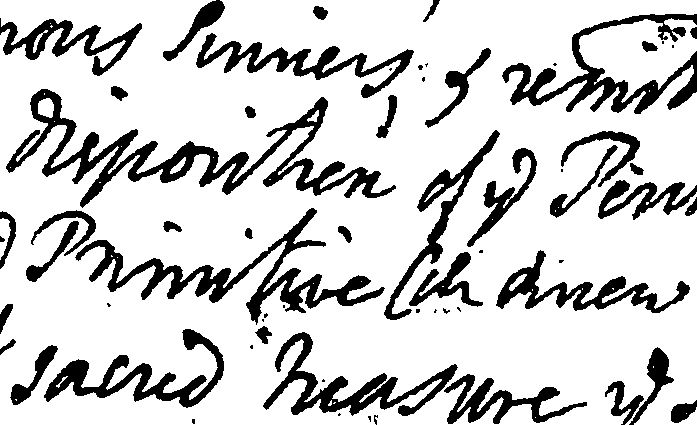 Sinners, & remit
disposition of ye
Primitive Ch drew
sacred treasure